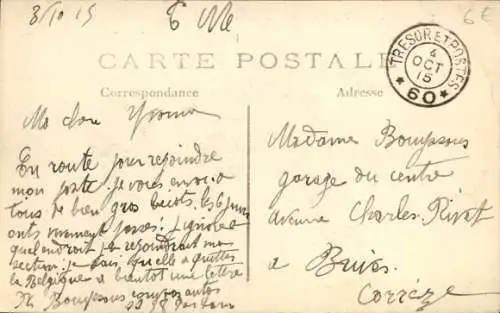 3/10 15
F M
6 €
CARTE POSTALE
Correspondance
Adresse
TRESOR ET POSTES
4
OCT
15
* 60 *
Ma chère Yvonne
En route pour rejoindre
mon poste je vous envoie à
tous de bien gros bécots. les 6 jours
ont vivement passés! J'ignore
quel endroit je rejoindrai ma
section. je sais qu'elle a quitté
la Belgique à bientôt une lettre
Bouyssous convoi autos
Madame Bouyssous
garage du centre
avenue Charles Rivet
à Brive
Corrèze